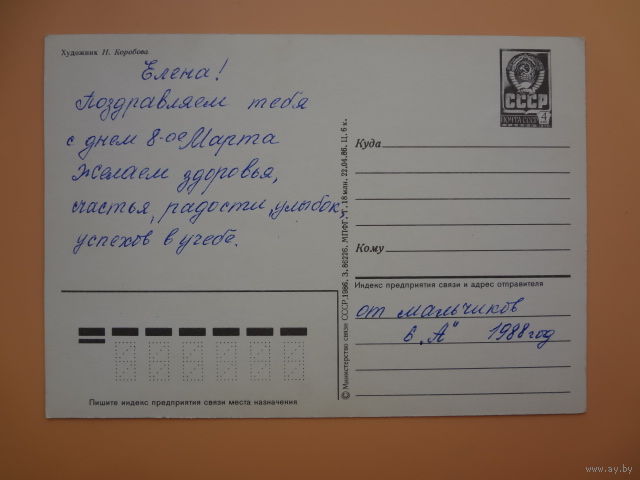 Художник Н. Коробова
Елена!
Поздравляем тебя
с днем 8-ое Марта
Желаем здоровья,
счастья, радости, улыбок,
успехов в учебе.
СССР
ПОЧТА СССР 4
Куда
Кому
Индекс предприятия связи и адрес отправителя
от мальчиков
6 „А" 1988 год
© Министерство связи СССР. 1986. З. 86226. МПФГ. Т. 18 млн. 22.04.86. Ц. 6 к.
Пишите индекс предприятия связи места назначения
www.ay.by